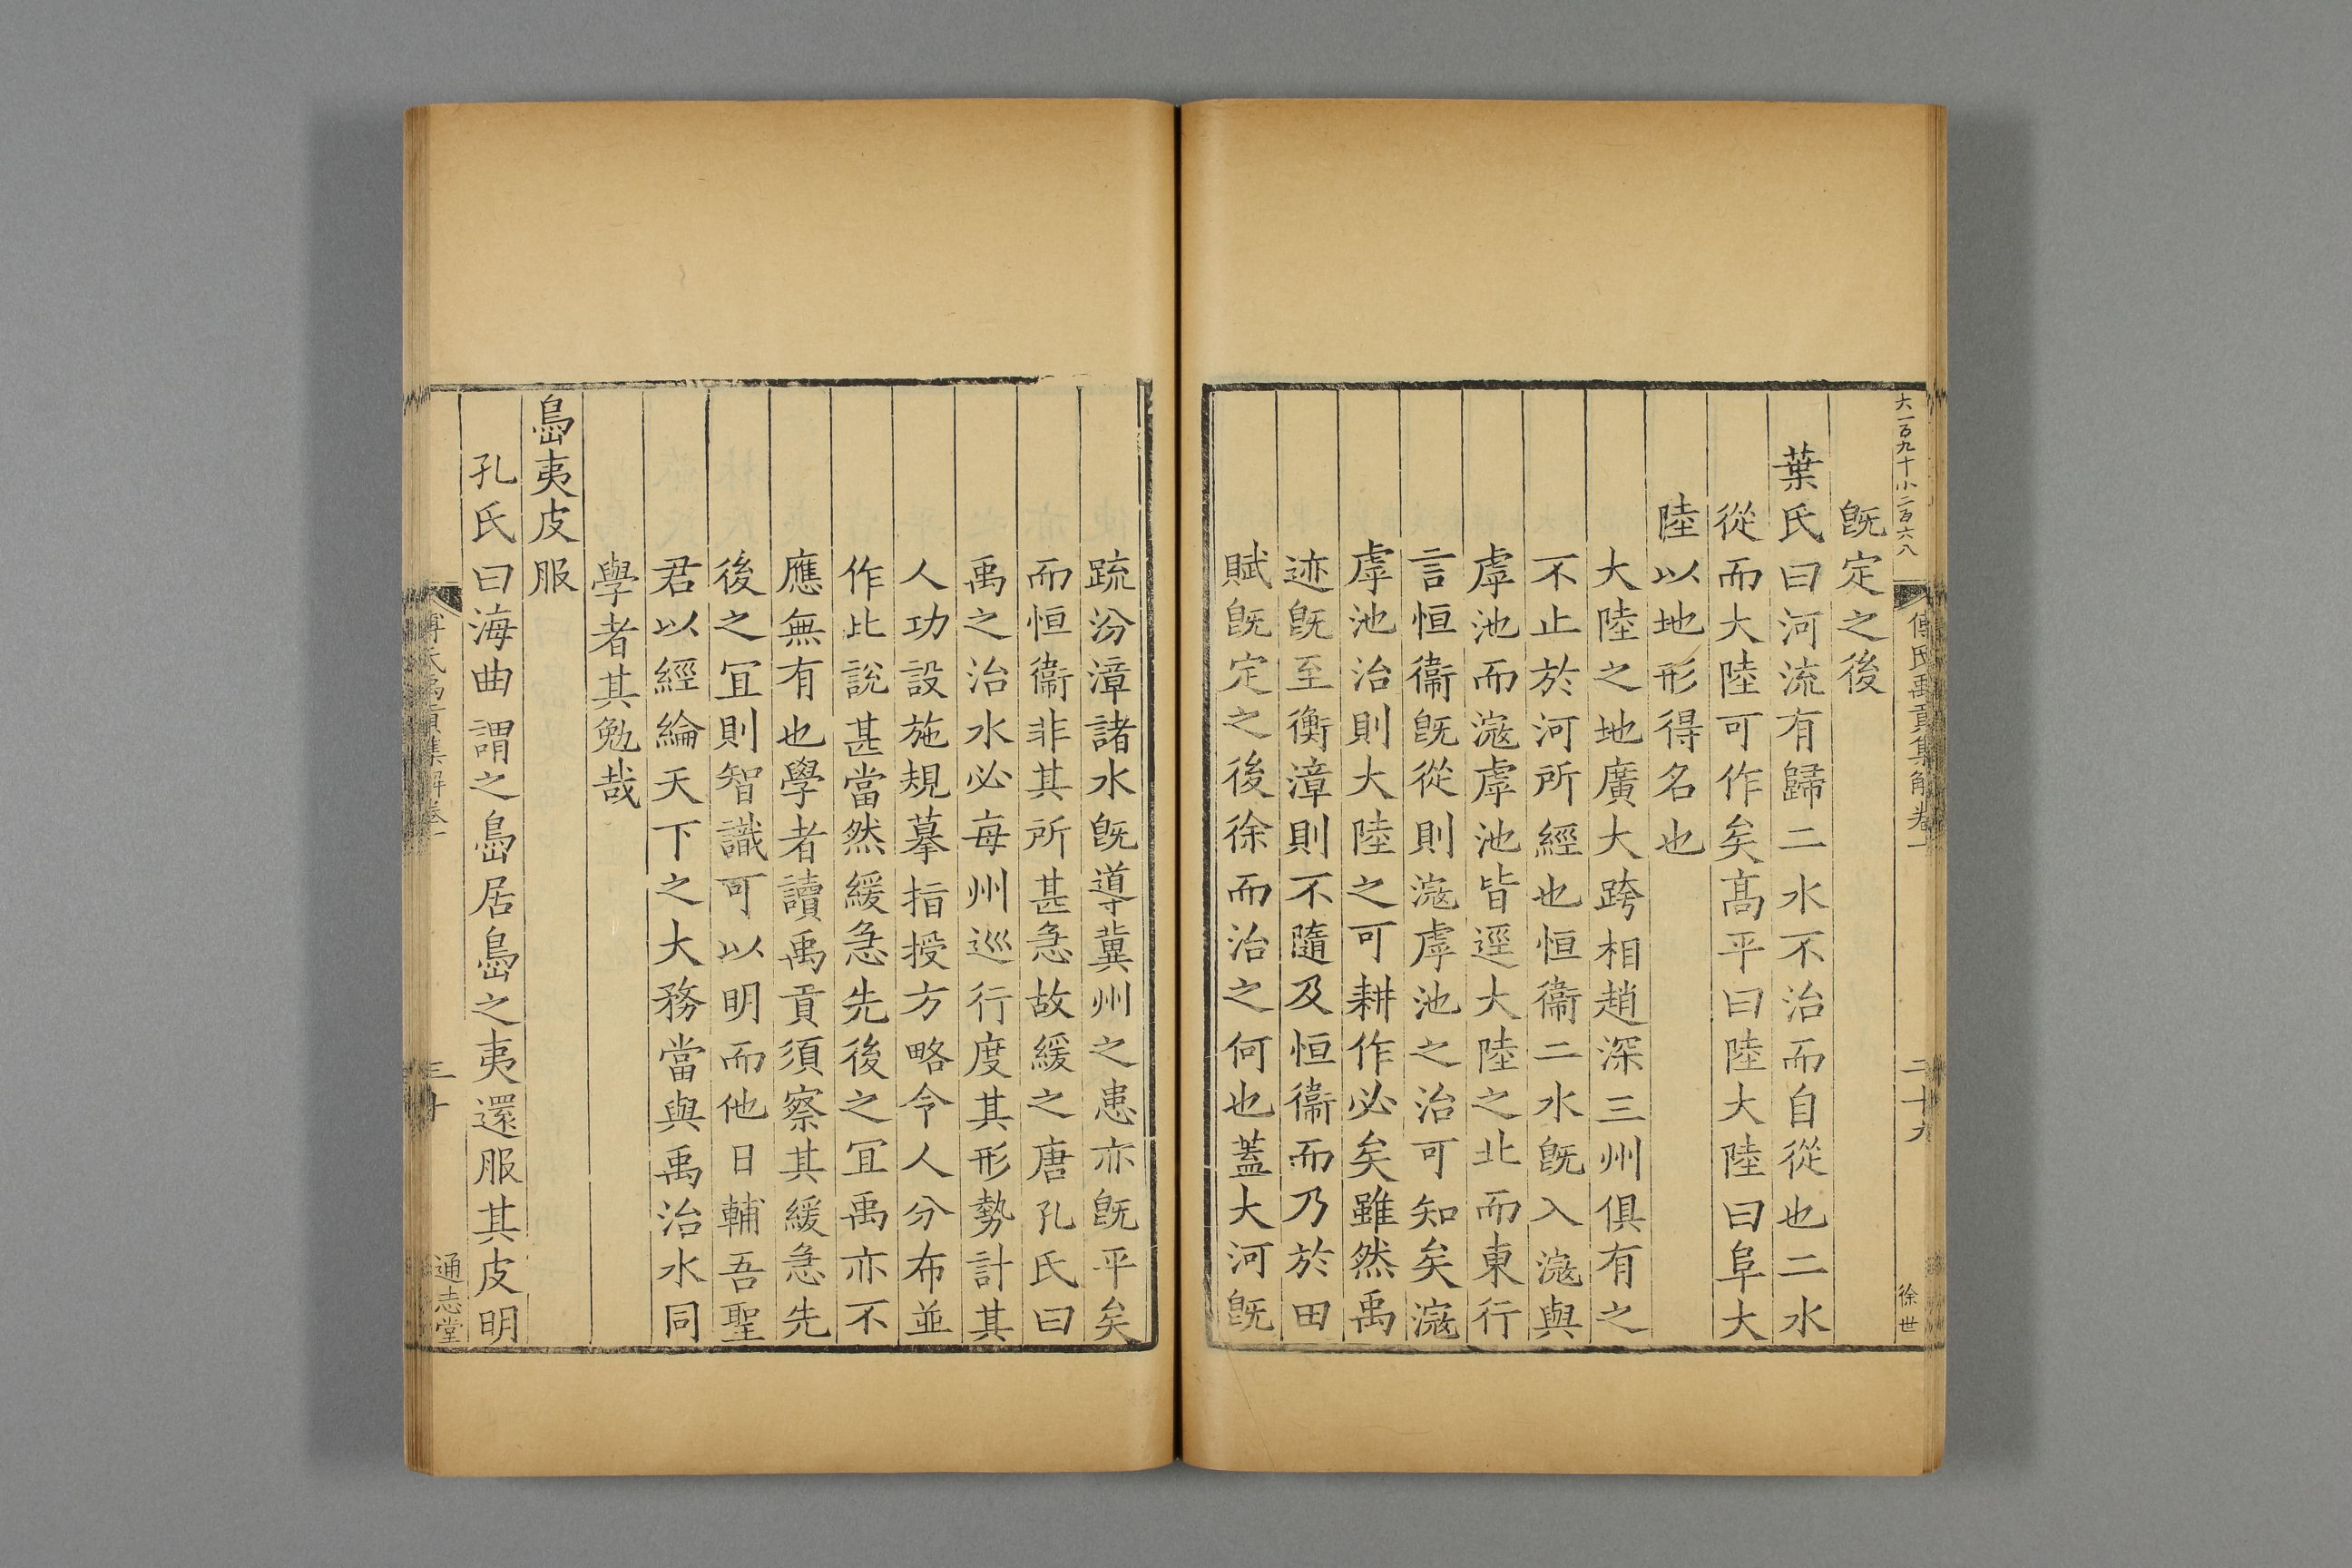 大一百九十小二百六八
傅氏禹貢集解卷一
二十九
徐世
旣定之後
葉氏曰河流有歸二水不治而自從也二水
從而大陸可作矣髙平曰陸大陸曰阜大
陸以地形得名也
大陸之地廣大跨相趙深三州俱有之
不止於河所經也恒衞二水旣入滱與
虖池而滱虖池皆逕大陸之北而東行
言恒衞旣從則滱虖池之治可知矣滱
虖池治則大陸之可耕作必矣雖然禹
迹旣至衡漳則不隨及恒衞而乃於田
賦旣定之後徐而治之何也蓋大河旣
疏汾漳諸水旣導冀州之患亦旣平矣
而恒衞非其所甚急故緩之唐孔氏曰
禹之治水必每州巡行度其形勢計其
人功設施規摹指授方略令人分布並
作此說甚當然緩急先後之冝禹亦不
應無有也學者讀禹貢須察其緩急先
後之冝則智識可以明而他日輔吾聖
君以經綸天下之大務當與禹治水同
學者其勉哉
島夷皮服
孔氏曰海曲謂之島居島之夷還服其皮明
傅氏禹貢集解卷一
三十
通志堂